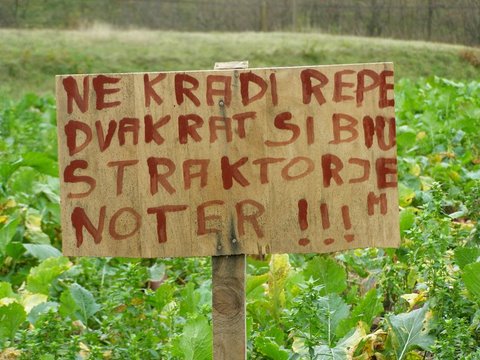 NE KRADI REPE
DVAKRAT SI BIU
STRAKTORJEM
NOTER !!!